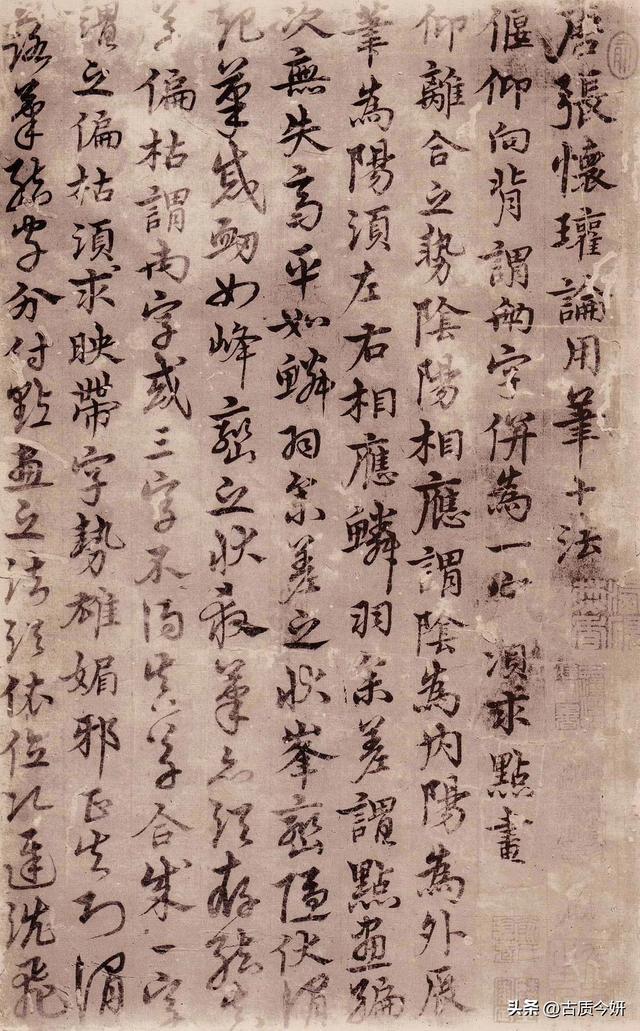 唐張懷瓘論用筆十法
偃仰向背謂兩字併為一字須求點畫
仰離合之勢陰陽相應謂陰為内陽為外展
筆為陽須左右相應鱗羽參差謂點畫編
次無失高平如鱗羽參差之狀峯巒隱伏謂
起筆蹙衂如峰巒之狀殺筆亦須存結真
草偏枯謂兩字或三字不得真草合成一字
謂之偏枯須求映帶字勢雄媚邪正失則謂
落筆結字分付點畫之法須依位次遲洗飛
头条 @古质今妍